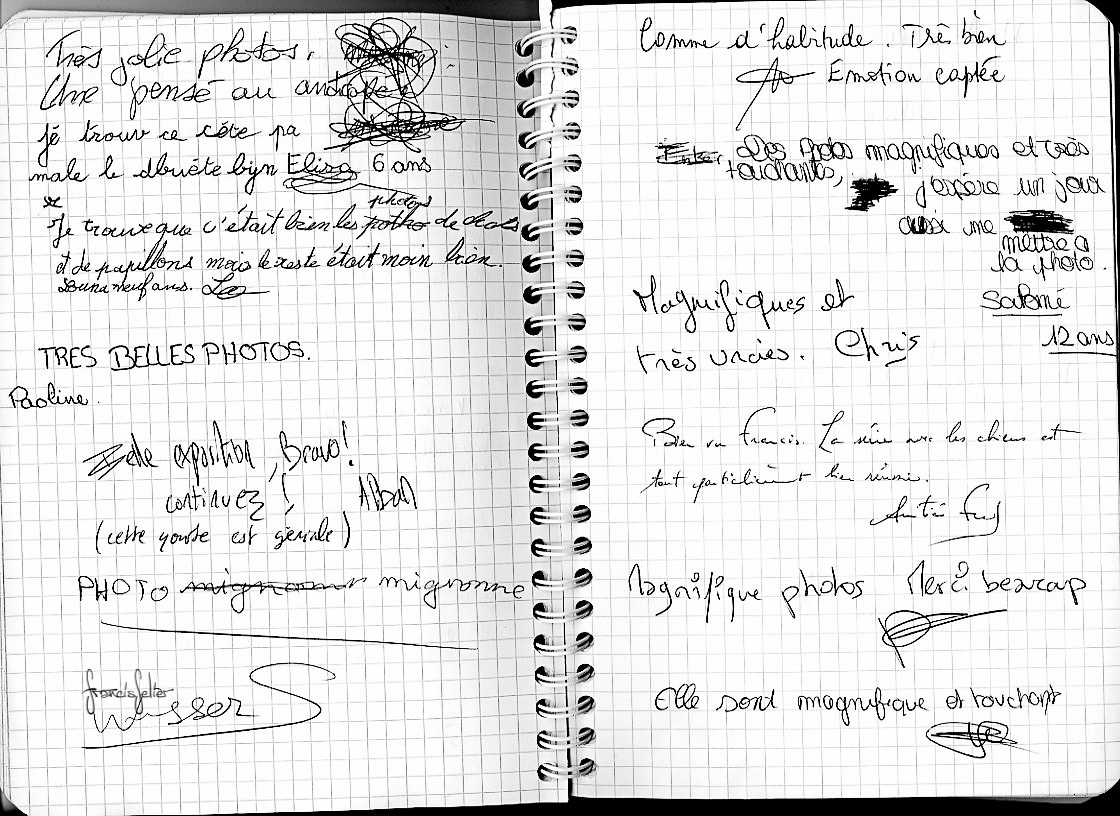 Très jolie photos.
Une pensé au
jé trouv ce cète pa
male le dbuète byn Elisa 6 ans
photos
Je trouve que c'était bien les potho de
et de papillons mais le reste était moin bien.
Louna neuf ans.
TRES BELLES PHOTOS.
Paoline.
Belle exposition, Bravo!
continuez! Alban
(cette gomme est géniale)
PHOTO mignonne
francis fellier
Wusser S
Comme d'habitude. Très bien
Emotion captée
Des photos magnifiques et très
touchantes,
j'espère un jour
aussi me
mettre a
la photo.
Salomé
12 ans
Magnifiques et
très vraies. Chris
Bien vu Francis. La série avec les chiens est
tout particulièrement bien réussie.
Magnifique photos Merci beaucap
Elle sont magnifique et touchant